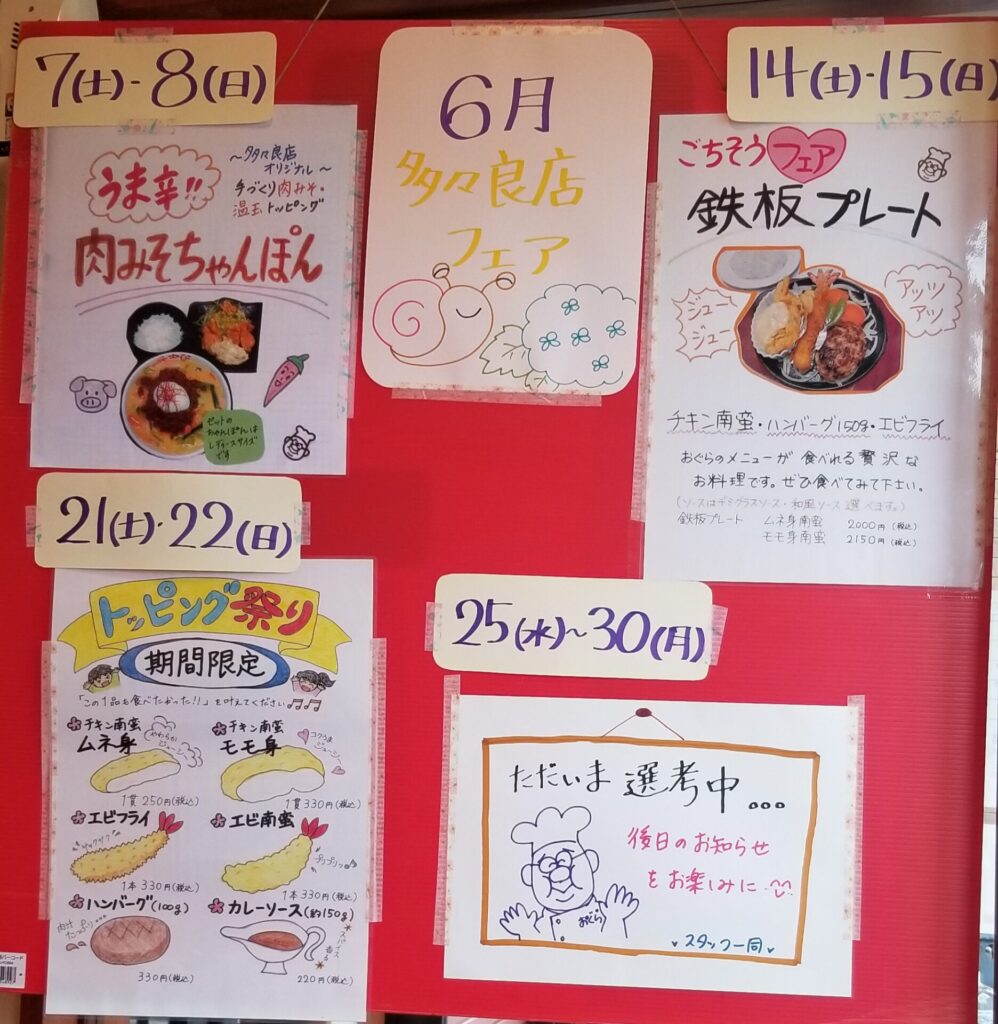 7(土)-8(日)
うま辛!!
~多々良店
オリジナル~
手づくり肉みそ・
温玉トッピング
肉みそちゃんぽん
セットの
ちゃんぽんは
レディースサイズ
です
6月
多々良店
フェア
14(土)・15(日)
ごちそうフェア
鉄板プレート
ジュー
ジュー
アッツ
アツ
チキン南蛮・ハンバーグ150g・エビフライ
おぐらのメニューが食べれる贅沢な
お料理です。ぜひ食べてみて下さい。
(ソースはデミグラスソース・和風ソース選べます。)
鉄板プレート ムネ身南蛮 2000円(税込)
モモ身南蛮 2150円(税込)
21(土)・22(日)
トッピング祭り
期間限定
「この1品も食べたかった!!」を叶えてください♫♫
チキン南蛮
ムネ身
やわらか
ジューシー
1貫250円(税込)
チキン南蛮
モモ身
コクうま
ジューシー
1貫330円(税込)
エビフライ
サックサク
1本330円(税込)
エビ南蛮
プリプリッ♪
1本330円(税込)
ハンバーグ(100g)
肉汁
たっぷり...
330円(税込)
カレーソース(約150g)
スパイス
香る
220円(税込)
25(水)~30(月)
ただいま選考中...
後日のお知らせ
をお楽しみに
おぐら
スタッフ一同